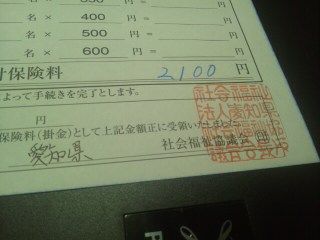 名 × 400 = 円
名 × 500 = 円
名 × 600 = 円
付保険料 2100 円
よって手続きを完了とします。
円
保険料(掛金)として上記金額正に受領いたしました
愛知県 社会福祉協議会 印